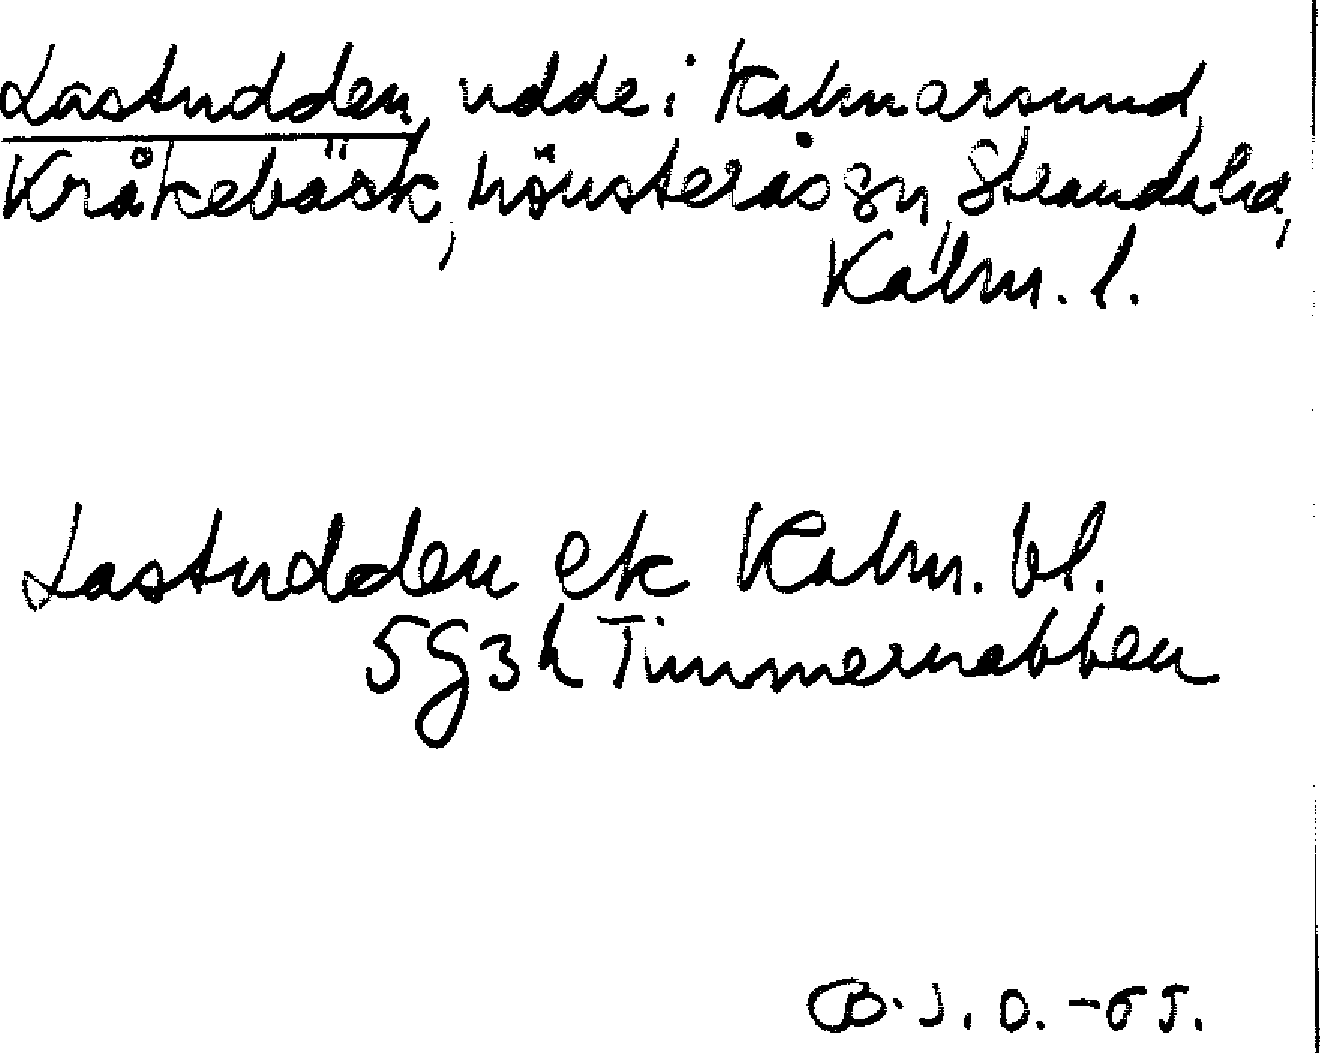 Lastudden, udde i Kalmarsund,
Kråkebäck, Mönsterås sn, Stranda hd,
Kalm. l.
Lastudden ek Kalm. bl.
5g3h Timmernabben
B.J.O. -65.